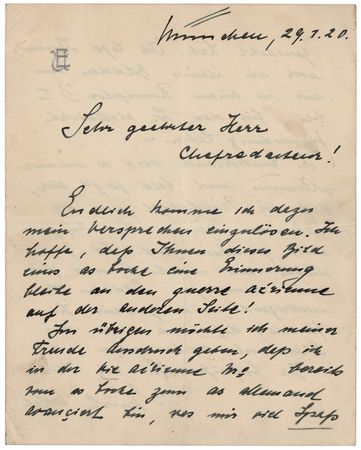 München, 29.1.20.
Sehr geehrter Herr
Chefredacteur!
Endlich komme ich dazu
mein Versprechen einzulösen. Ich
hoffe, daß Ihnen dieses Bild
eines as boche eine Erinnerung
bleibe an den guerre aérienne
auf der anderen Seite!
Im übrigen möchte ich meiner
Freude Ausdruck geben, daß ich
in der vie aérienne No bereits
vom as boche zum as allemand
avanciert bin, was mir viel Spaß